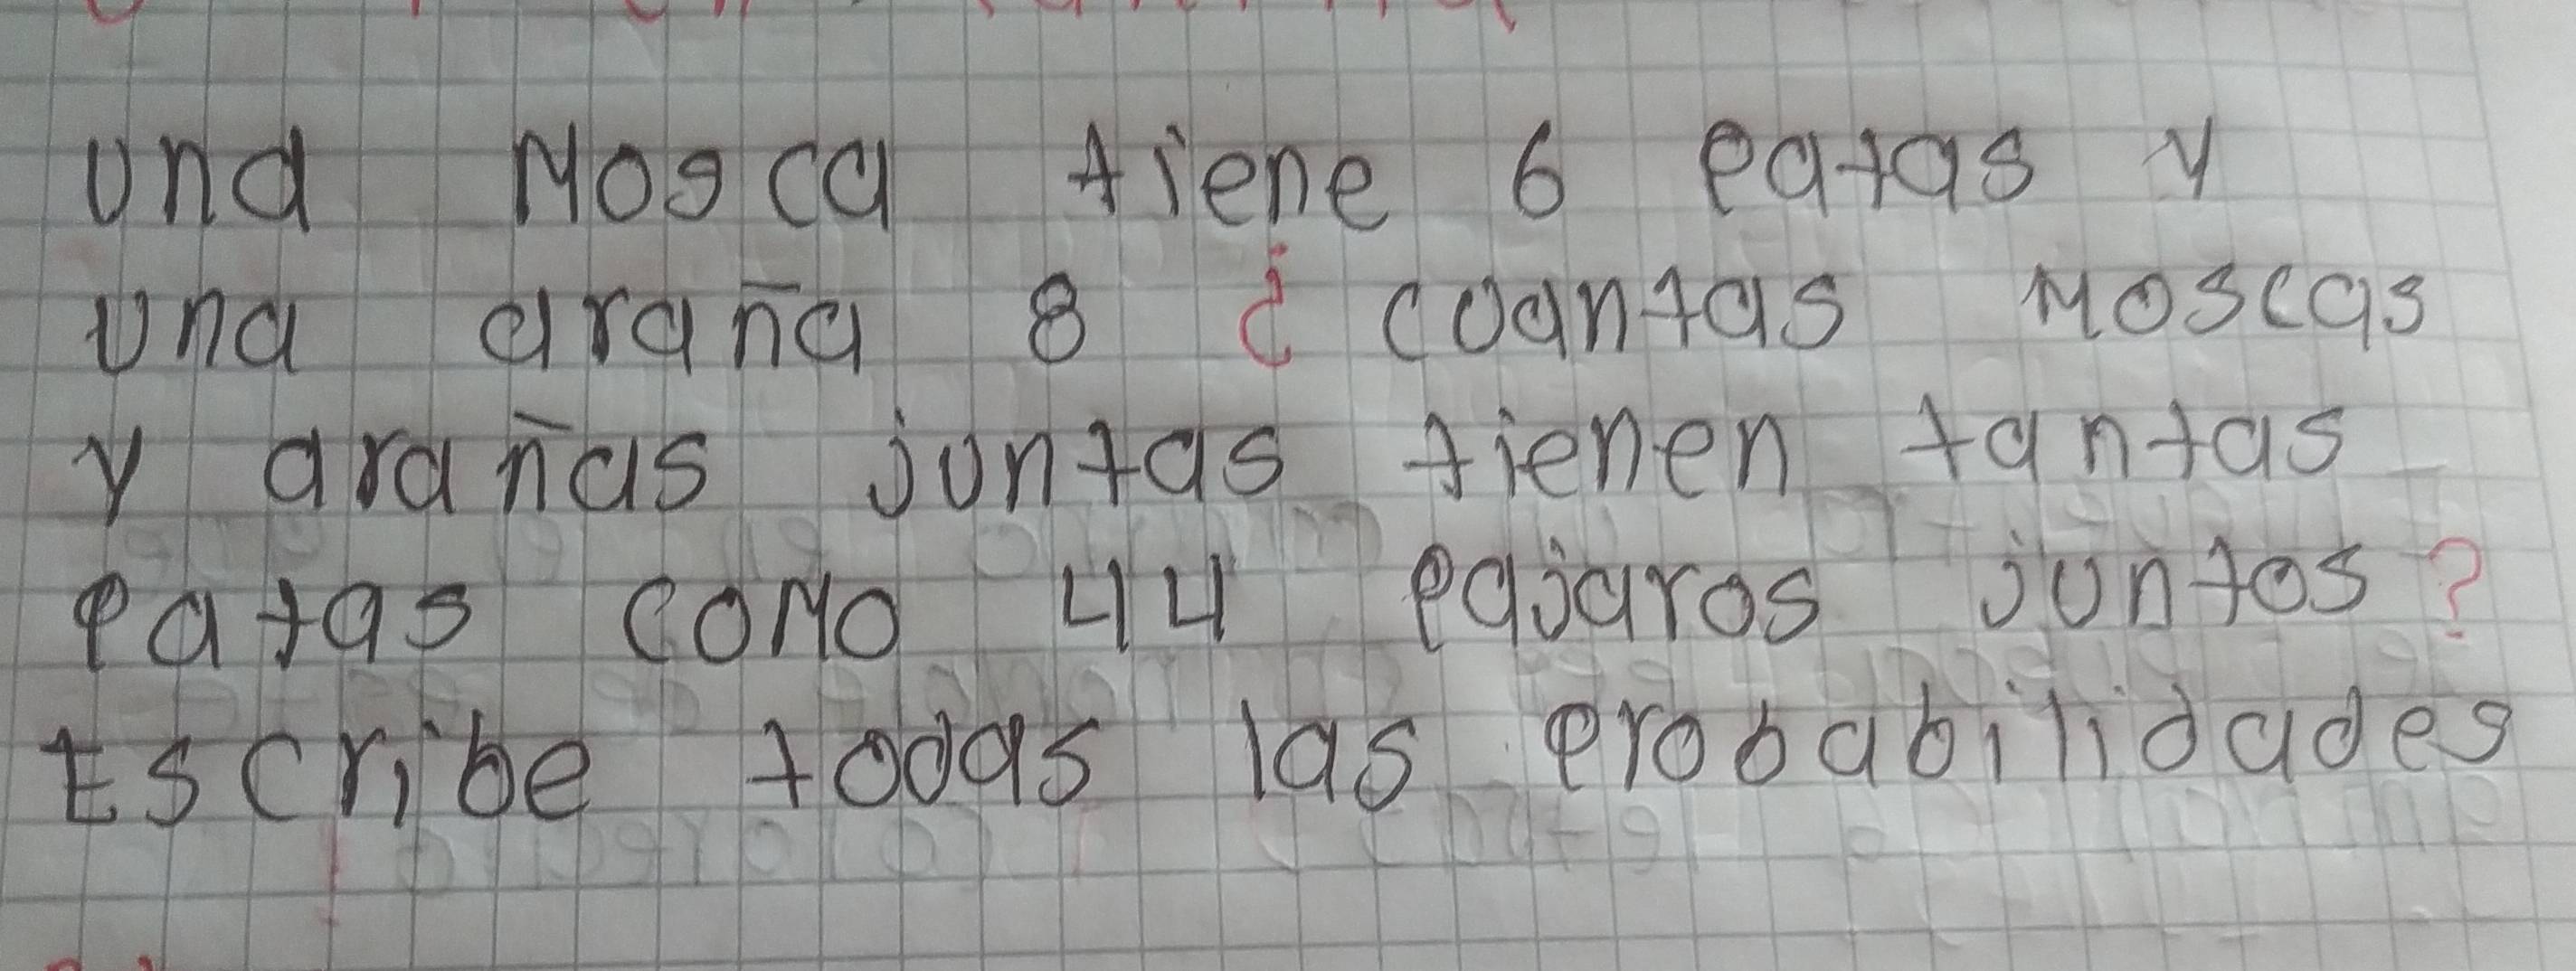 una Mosca tiene 6 patas y
una araña 8 ¿ cuantas Moscas
y arañas juntas tienen tantas
patas como 44 pajaros juntos?
Escribe todas las probabilidades